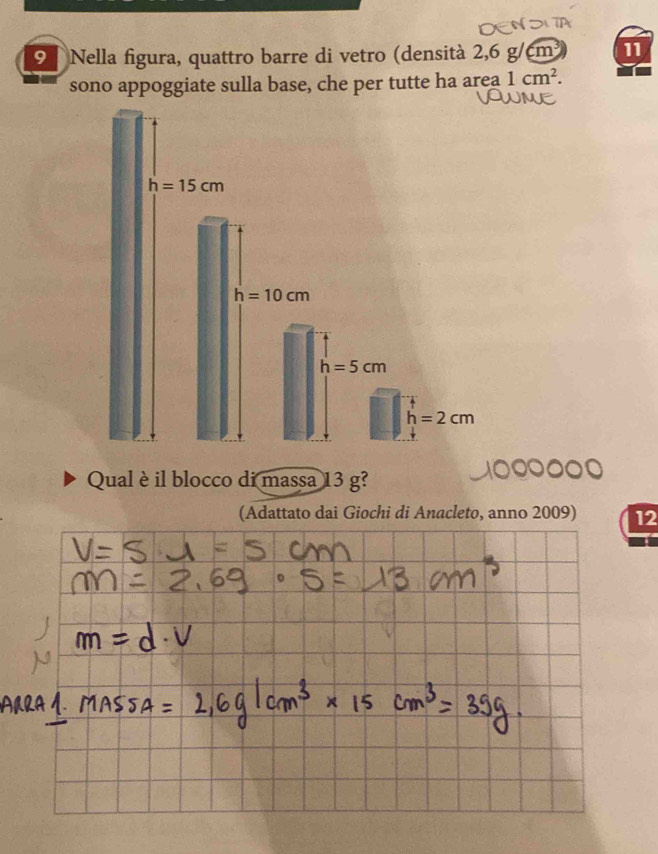 DENSITÀ
9 Nella figura, quattro barre di vetro (densità 2,6 g/cm³)
11
sono appoggiate sulla base, che per tutte ha area 1 cm².
VOLUME
h = 15 cm
h = 10 cm
h = 5 cm
h = 2 cm
Qual è il blocco di massa 13 g?
1000000
(Adattato dai Giochi di Anacleto, anno 2009)
12
V = 5 · 1 = 5 cm
m = 2.6g · 5 = 13 cm³
m = d · V
ARRA 1. MASSA = 2,6 g/cm³ × 15 cm³ = 39g.